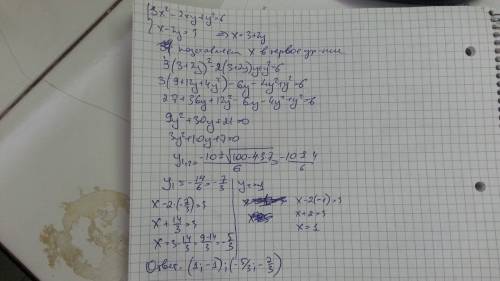 { 3x² - 2xy + y² = 6
x - 2y = 3 ⇒ x = 3 + 2y
подставляем x в первое ур-ние
3(3+2y)² - 2(3+2y)y + y² = 6
3(9+12y+4y²) - 6y - 4y² + y² = 6
27 + 36y + 12y² - 6y - 4y² + y² = 6
9y² + 30y + 21 = 0
3y² + 10y + 7 = 0
y₁,₂ = (-10 ± √(100-4·3·7))/6 = (-10 ± 4)/6
y₁ = -14/6 = -7/3 y = -1
x - 2·(-7/3) = 3 x - 2(-1) = 3
x + 14/3 = 3 x + 2 = 3
x = 3 - 14/3 = (9-14)/3 = -5/3 x = 1
Ответ: (1; -1); (-5/3; -7/3)